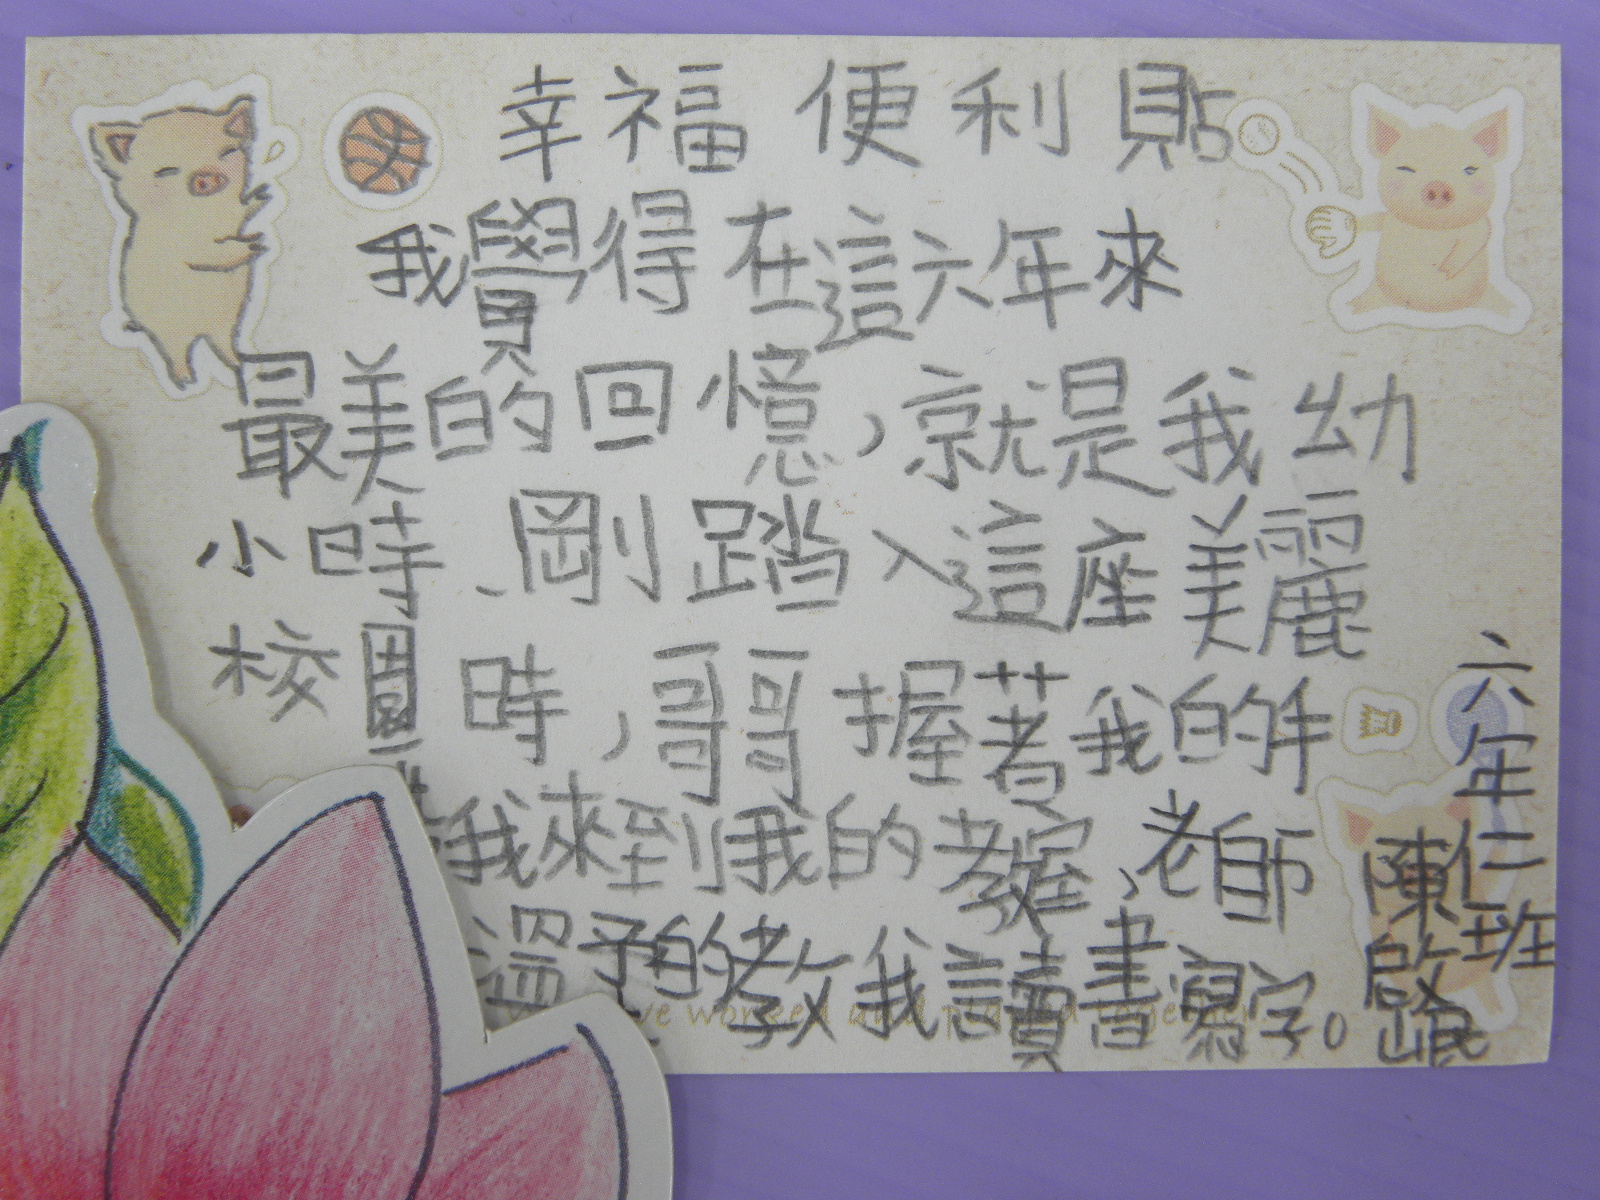 幸福便利貼
我覺得在這六年來
最美的回憶,就是我幼
小時、剛踏入這座美麗
校園時,哥哥握著我的手
我來到我的教室、老師
溫和的教我讀書寫字。
六年仁班
陳啟